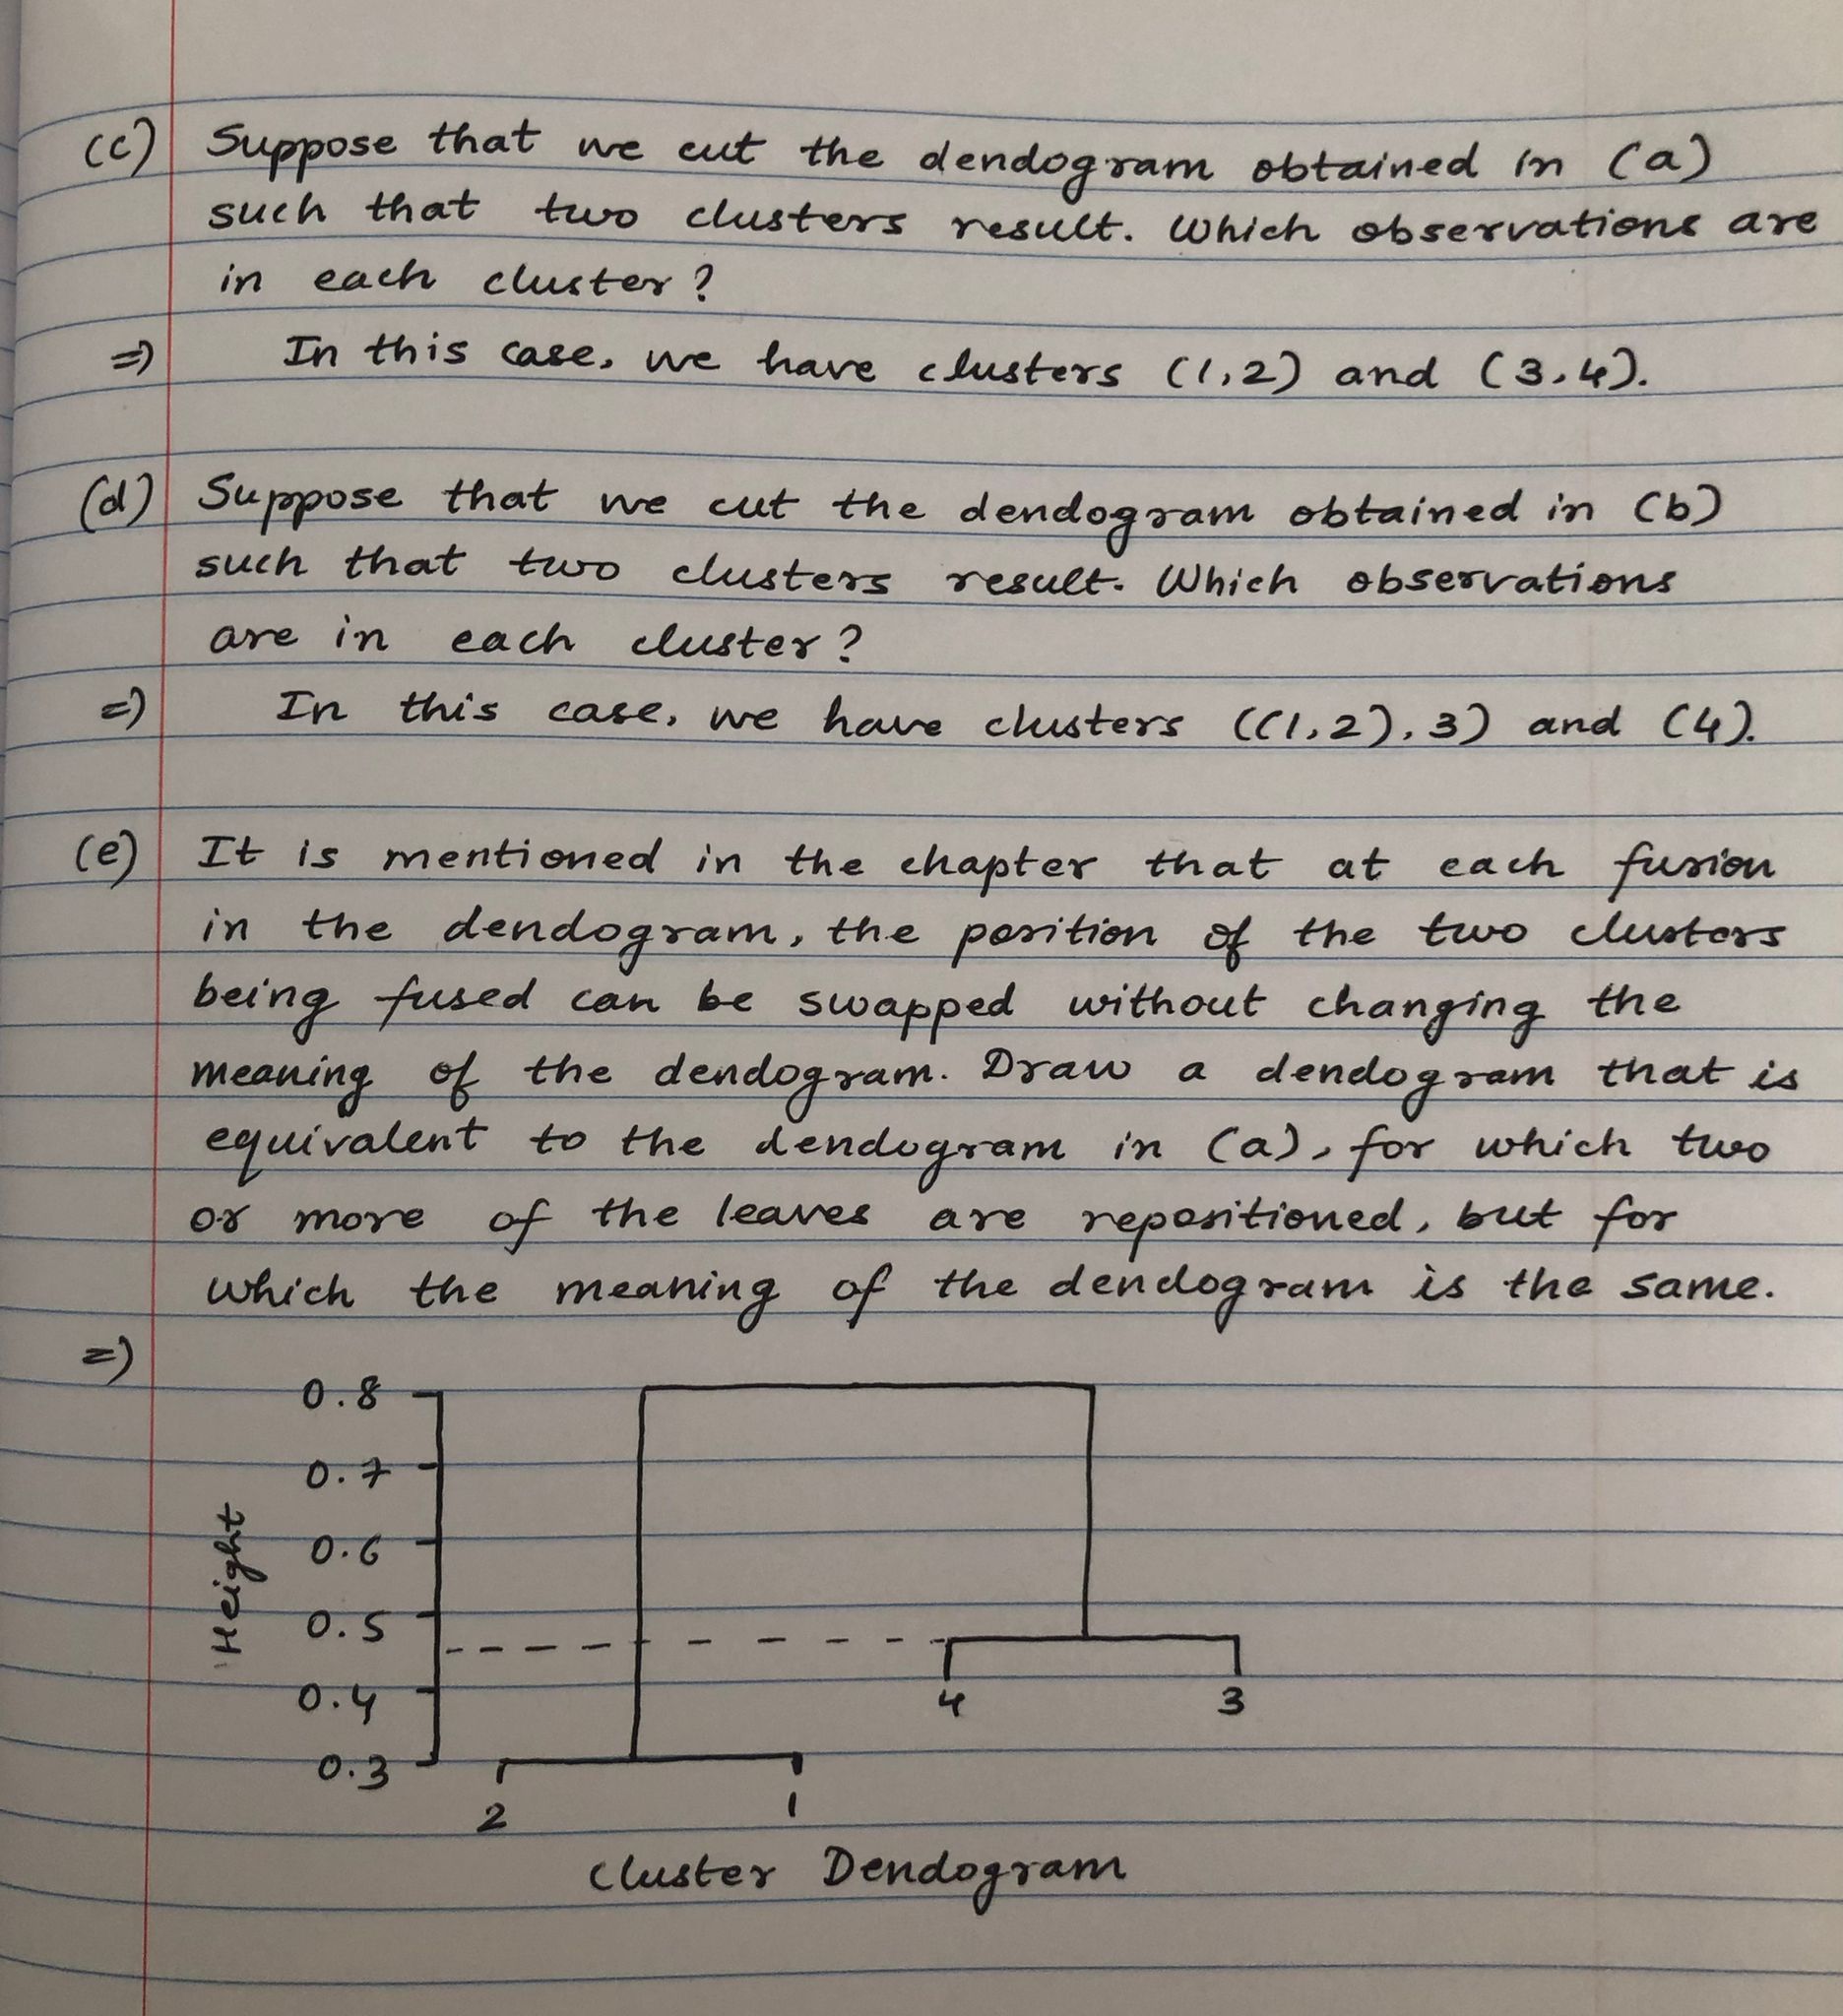 (c) Suppose that we cut the dendogram obtained in (a)
such that two clusters result. Which observations are
in each cluster?
=) In this case, we have clusters (1,2) and (3,4).
(d) Suppose that we cut the dendogram obtained in (b)
such that two clusters result. Which observations
are in each cluster?
=) In this case, we have clusters ((1,2),3) and (4).
(e) It is mentioned in the chapter that at each fusion
in the dendogram, the position of the two clusters
being fused can be swapped without changing the
meaning of the dendogram. Draw a dendogram that is
equivalent to the dendogram in (a), for which two
or more of the leaves are repositioned, but for
which the meaning of the dendogram is the same.
=)
0.8
0.7
0.6
0.5
0.4
0.3
Height
4 3
2 1
Cluster Dendogram